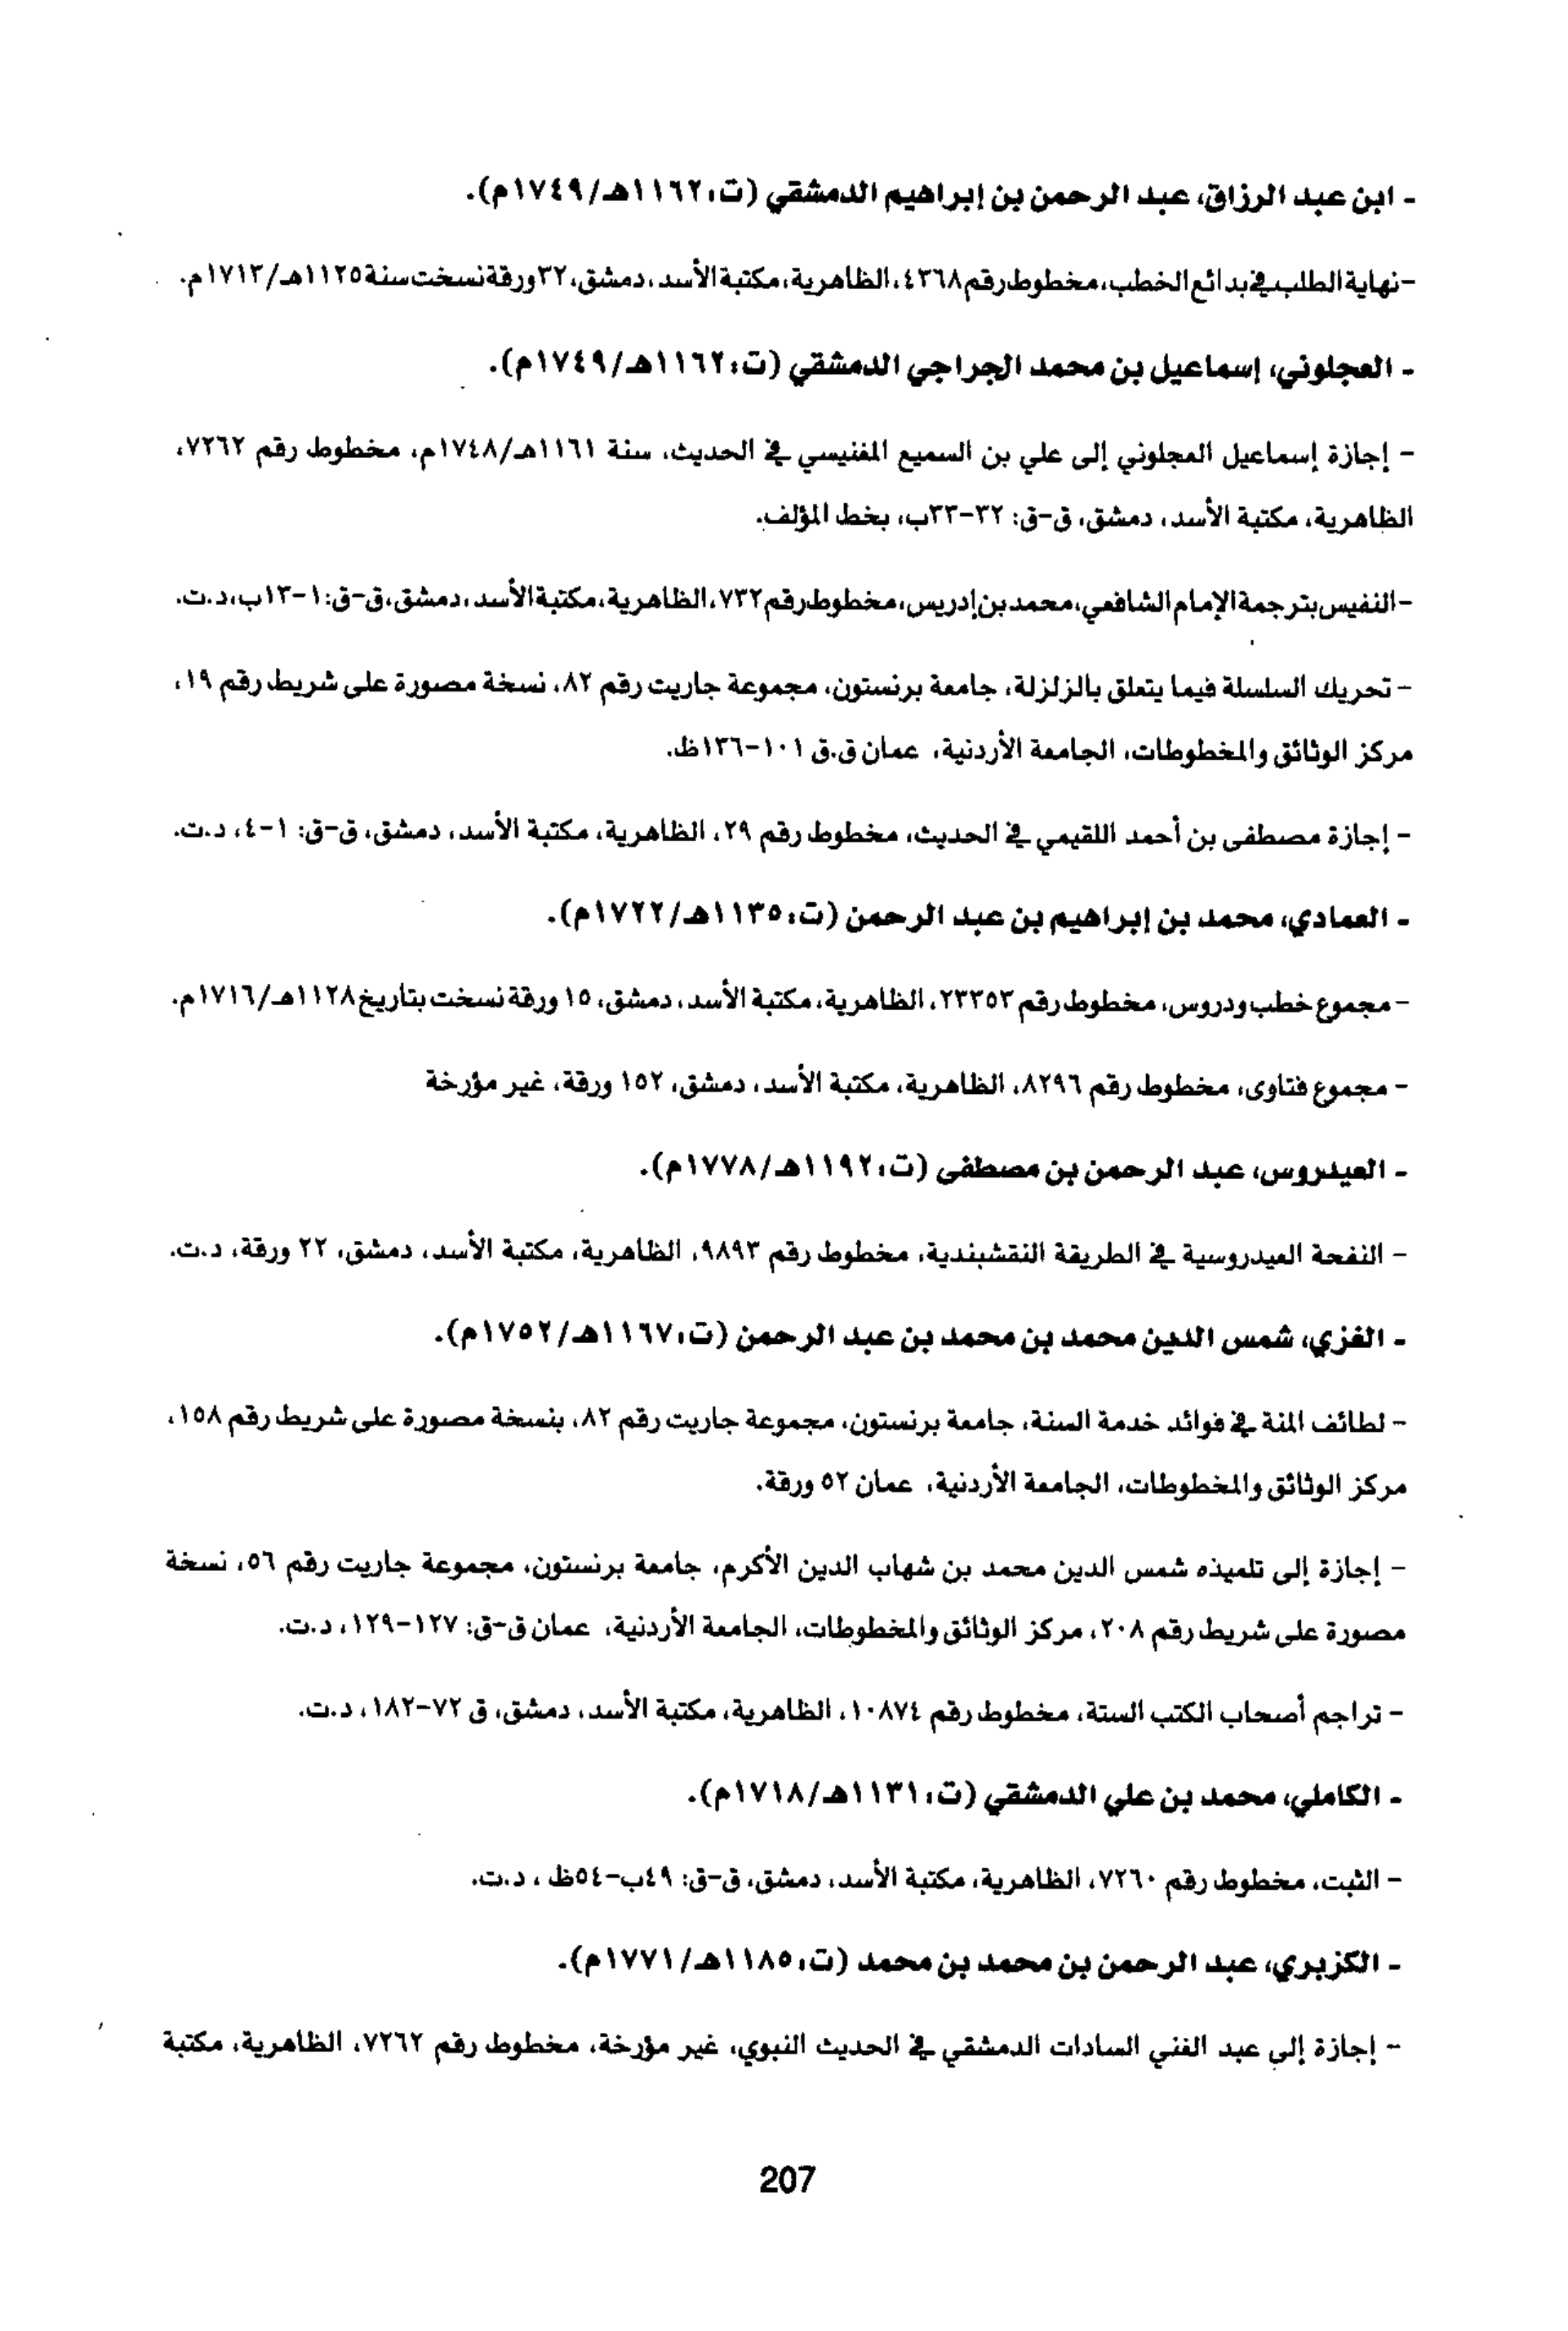 - ابن عبد الرزاق، عبد الرحمن بن إبراهيم الدمشقي (ت:١١٦٢هـ/١٧٤٩م).
- نهاية الطلب في بدائع الخطب، مخطوط رقم ٤٣٦٨، الظاهرية، مكتبة الأسد، دمشق، ٣٢ ورقة نسخت سنة ١١٢٥هـ/١٧١٣م.
- العجلوني، إسماعيل بن محمد الجراجي الدمشقي (ت:١١٦٢هـ/١٧٤٩م).
- إجازة إسماعيل العجلوني إلى علي بن السميع المغنيسي في الحديث، سنة ١١٦١هـ/١٧٤٨م، مخطوط رقم ٧٢٦٢،
الظاهرية، مكتبة الأسد، دمشق، ق-ق: ٣٢-٣٣ب، بخط المؤلف.
- النفيس بترجمة الإمام الشافعي، محمد بن إدريس، مخطوط رقم ٧٣٢، الظاهرية، مكتبة الأسد، دمشق، ق-ق: ١-١٣ب، د.ت.
- تحريك السلسلة فيما يتعلق بالزلزلة، جامعة برنستون، مجموعة جاريت رقم ٨٢، نسخة مصورة على شريط رقم ١٩،
مركز الوثائق والمخطوطات، الجامعة الأردنية، عمان ق.ق ١٠١-١٣٦ظ.
- إجازة مصطفى بن أحمد اللقيمي في الحديث، مخطوط رقم ٢٩، الظاهرية، مكتبة الأسد، دمشق، ق-ق: ١-٤، د.ت.
- العمادي، محمد بن إبراهيم بن عبد الرحمن (ت:١١٣٥هـ/١٧٢٢م).
- مجموع خطب ودروس، مخطوط رقم ٢٣٣٥٣، الظاهرية، مكتبة الأسد، دمشق، ١٥ ورقة نسخت بتاريخ ١١٢٨هـ/١٧١٦م.
- مجموع فتاوى، مخطوط رقم ٨٢٩٦، الظاهرية، مكتبة الأسد، دمشق، ١٥٢ ورقة، غير مؤرخة
- العيدروس، عبد الرحمن بن مصطفى (ت:١١٩٢هـ/١٧٧٨م).
- النفحة العيدروسية في الطريقة النقشبندية، مخطوط رقم ٩٨٩٣، الظاهرية، مكتبة الأسد، دمشق، ٢٢ ورقة، د.ت.
- الغزي، شمس الدين محمد بن محمد بن عبد الرحمن (ت:١١٦٧هـ/١٧٥٢م).
- لطائف المنة في فوائد خدمة السنة، جامعة برنستون، مجموعة جاريت رقم ٨٢، بنسخة مصورة على شريط رقم ١٥٨،
مركز الوثائق والمخطوطات، الجامعة الأردنية، عمان ٥٢ ورقة.
- إجازة إلى تلميذه شمس الدين محمد بن شهاب الدين الأكرم، جامعة برنستون، مجموعة جاريت رقم ٥٦، نسخة
مصورة على شريط رقم ٢٠٨، مركز الوثائق والمخطوطات، الجامعة الأردنية، عمان ق-ق: ١٢٧-١٢٩، د.ت.
- تراجم أصحاب الكتب الستة، مخطوط رقم ١٠٨٧٤، الظاهرية، مكتبة الأسد، دمشق، ق ٧٢-١٨٢، د.ت.
- الكاملي، محمد بن علي الدمشقي (ت:١١٣١هـ/١٧١٨م).
- الثبت، مخطوط رقم ٧٢٦٠، الظاهرية، مكتبة الأسد، دمشق، ق-ق: ٤٩ب-٥٤ظ ، د.ت.
- الكزبري، عبد الرحمن بن محمد بن محمد (ت:١١٨٥هـ/١٧٧١م).
- إجازة إلى عبد الغني السادات الدمشقي في الحديث النبوي، غير مؤرخة، مخطوط رقم ٧٢٦٢، الظاهرية، مكتبة
207